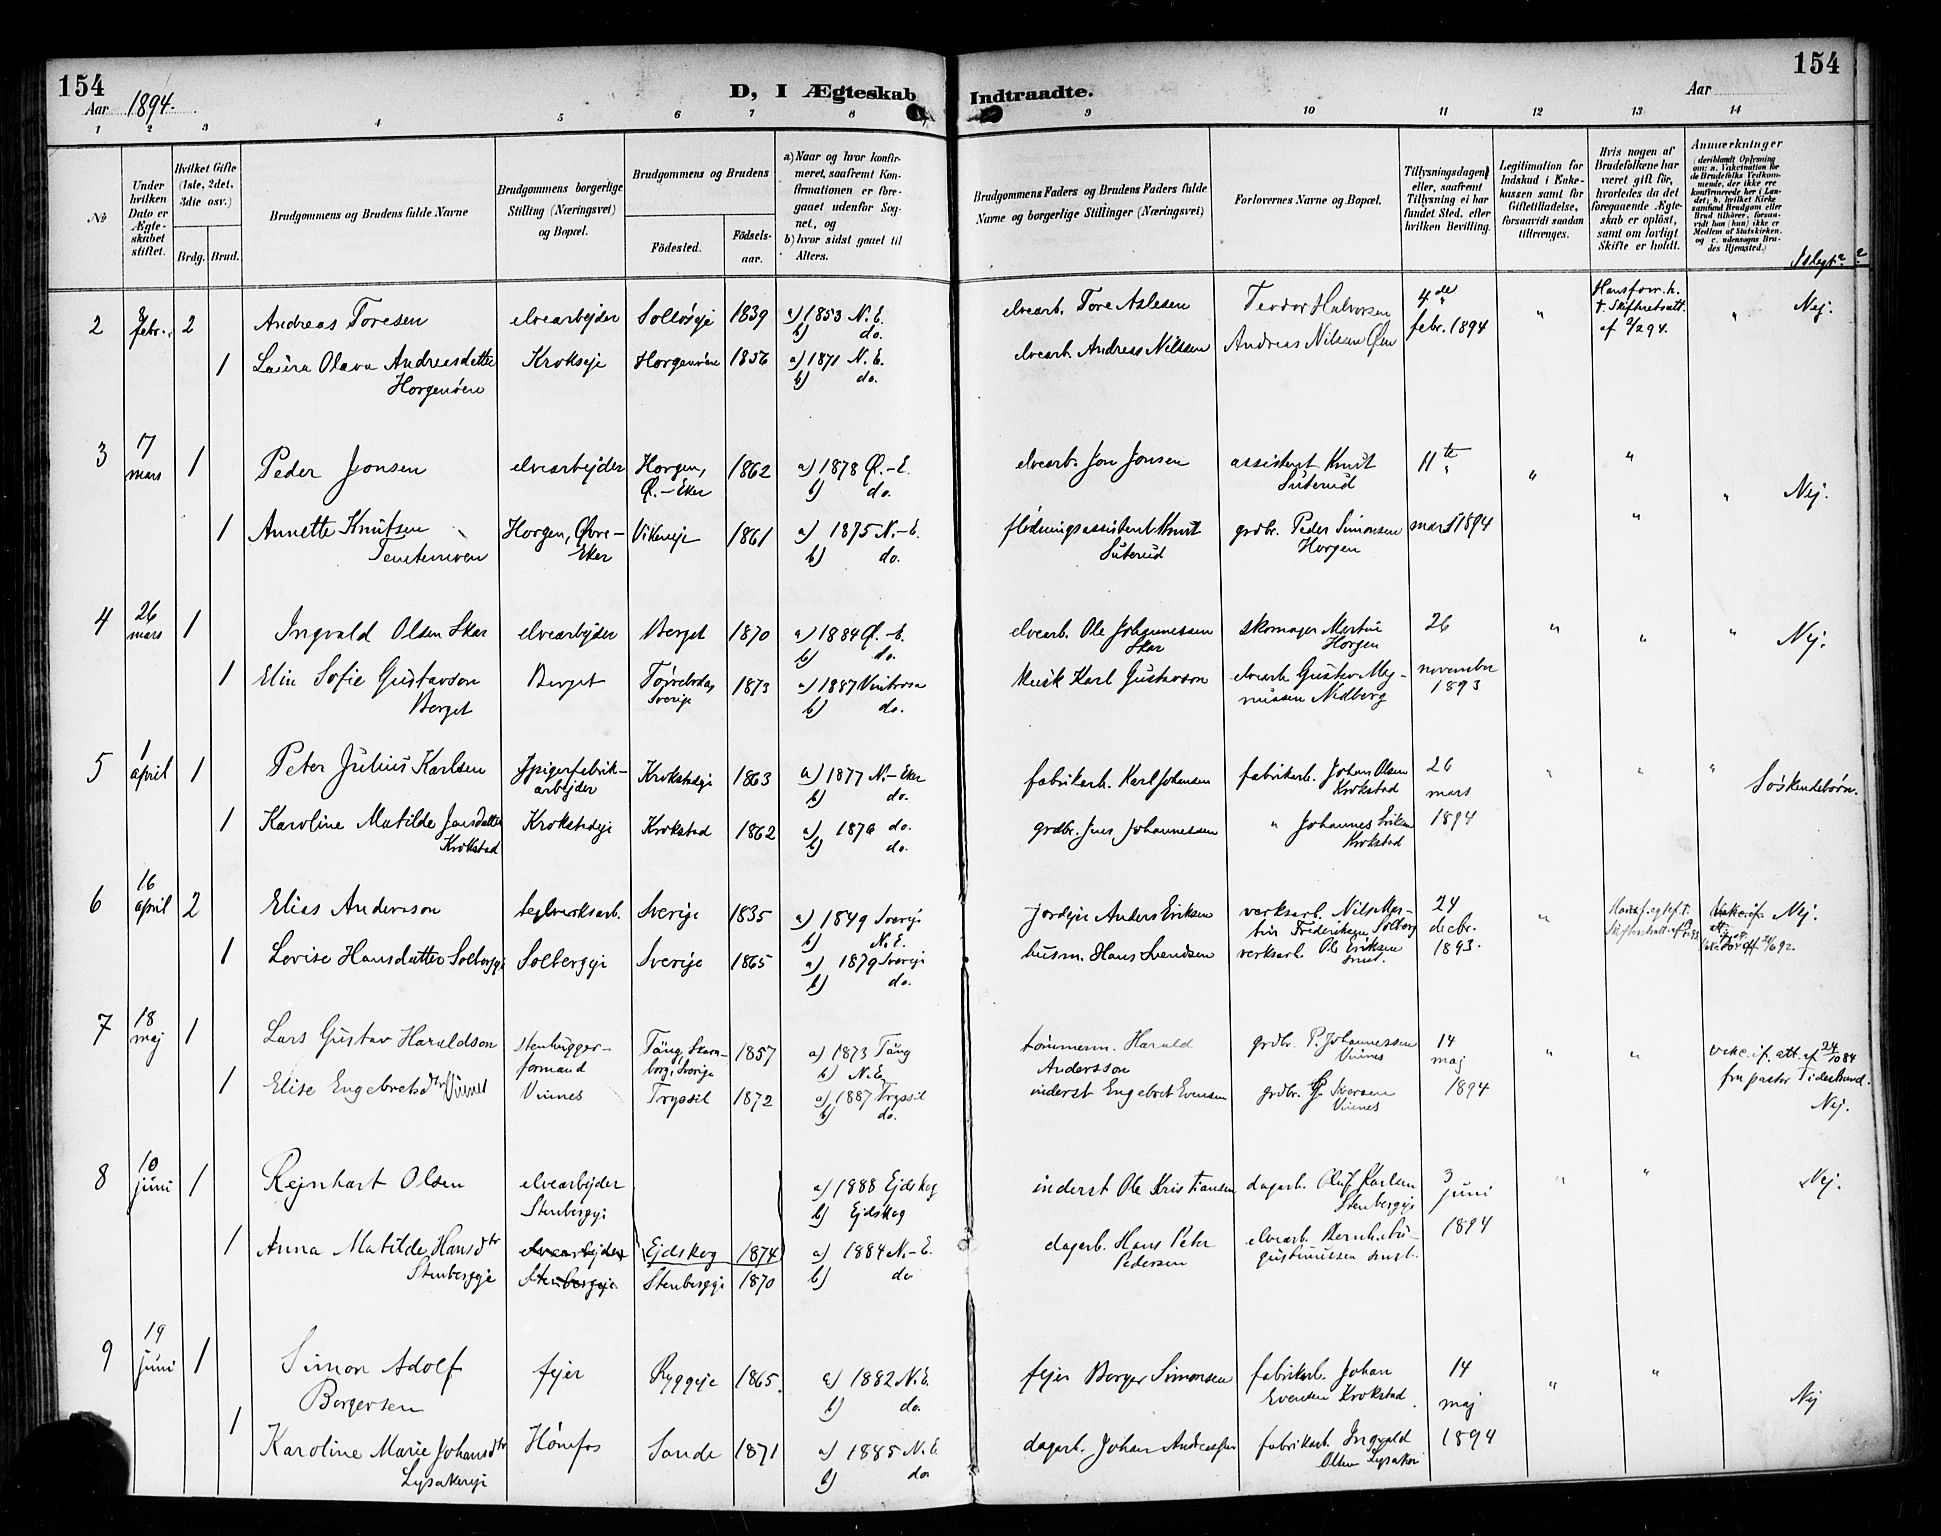 154
Aar 1894.
D, I Ægteskab Indtraadte.
Aar
154
1 2 3 4 5 6 7 8 9 10 11 12 13 14
No
Under hvilken Dato er Ægteskabet stiftet.
Hvilket Gifte (1ste, 2det, 3die osv.)
Brdg. Brud.
Brudgommens og Brudens fulde Navne
Brudgommens borgerlige Stilling (Næringsvei) og Bopæl.
Brudgommens og Brudens
Födested.
Födselsaar.
a) Naar og hvor konfirmeret, saafremt Konfirmationen er foregaaet udenfor Sognet, og
b) hvor sidst gaaet til Alters.
Brudgommens Faders og Brudens Faders fulde Navne og borgerlige Stillinger (Næringsvei)
Forlovernes Navne og Bopæl.
Tillysningsdagen eller, saafremt Tillysning ei har fundet Sted, efter hvilken Bevilling.
Legitimation for Indskud i Enkekassen samt for Giftetilladelse, forsaavidt saadan tiltrænges.
Hvis nogen af Brudefolkene har været gift för, hvorledes da det foregaaende Ægteskab er oplöst, samt om lovligt Skifte er holdt.
Anmærkninger
(deriblandt Oplysning om: a. Vakcination for de Brudefolks Vedkommende, der ikke ere konfirmerede her i Landet; b. hvilket Kirkesamfund Brudgom eller Brud tilhörer, forsaavidt han (hun) ikke er Medlem af Statskirken, og c. udensogns Brudes Hjemsted.)
2 8 febr. 2 Andreas Toresen elvearbejder Solbergeje 1839 a) 1853 N. E. elvearb. Tore Aslesen Teodor Halvorsen 4de " " Nej.
b) do.
febr. 1894
1 Laura Olava Andreasdatter Krokseje Horgenöen 1856 a) 1871 N. E. elvearb. Andreas Nilssen Andreas Nilsen Øen
Horgenöen b) do.
3 17 mars 1 Peder Jonsen elvearbejder Horgen, 1862 a) 1878 Ø.-E. elvearb. Jon Jonsen assistent Knut 11te " "
Ø.-Eker b) do. Suterud " Nej.
1 Annette Knutsen Horgen, Øvre- Vikeneje 1861 a) 1875 N.-E. flödningsassistent Knut grdbr. Peder Simonsen mars 1894 "
Eker b) do. Suterud Horgen
4 26 mars 1 Ingvald Olsen Skar elvearbejder Berget 1870 a) 1884 Ø.-E. elvearb. Ole Johannessen skomager Martin 26 " " " Nej.
b) do. Skar Horgen
1 Elin Sofie Gustavson Berget 1873 a) 1887 Karl Gustavson elvearb. Gustav Mag- november
Berget Sverige b) do. nussen Nedberg 1893
5 1 april 1 Peter Julius Karlsen spigerfabrik- Krokstadeje 1863 a) 1877 N.-Eker fabrikarb. Karl Johansen fabrikarb. Johan Olsen 26 " " " Söskendebörn.
arbejder b) do. Krokstad mars
1 Karoline Matilde Jensdatter Krokstadeje Krokstad 1862 a) 1876 do. grdbr. Jens Johannessen " Johannes Eriksen 1894
Krokstad b) do. Krokstad
6 16 april 2 Elias Andersson teglverksarb. Sverige 1835 a) 1849 Sverige Anders Eriksen verksarb. Nils 24 " Nej.
b) N. E. Frederiksen Solberg decbr.
1 Lovise Hansdatter Solbergeje Solbergeje Sverige 1865 a) 1879 Sverige husm. Hans Svendsen verksarb. Ole Eriksen 1893.
b) do. smst.
7 18 maj 1 Lars Gustav Haraldson stenhugger- Täng, Skara- 1857 a) 1873 Täng tömmerm. Harald grdbr. P. Johannessen 14 " " vakc. if. att. af 24/10 84
formand borg, Sverige b) N. E. Andersson Vinnes maj fra pastor Tidestrand.
1 Elise Engebretsdtr Vinnes Vinnes Tryssil 1872 a) 1887 Tryssil inderst Engebret Evensen grdbr. G. Iversen 1894
b) do. Vinnes Nej.
8 10 juni 1 Rejnhart Olsen elvearbejder a) 1888 Ejdskog inderst Ole Kristiansen dagarb. Oluf Karlsen 3 " " Nej.
Stenbergeje b) Ejdskog Stenbergeje juni
1 Anna Matilde Hansdtr elvearbejder Ejdskog 1874 a) 1884 N.-E. dagarb. Hans Peter elvearb. Bernh. Au- 1894
Stenbergeje Stenbergeje Stenbergeje 1870 b) do Pedersen gustinussen smst.
9 19 juni 1 Simon Adolf fejer Ryggeje 1865. a) 1882 N. E. fejer Borger Simonsen fabrikarb. Johan 14 " "
Borgersen b) do. Evensen Krokstad maj Nej
1 Karoline Marie Johansdtr Hönefos Sande 1871 a) 1885 N. E. dagarb. Johan Andreassen fabrikarb. Ingvald 1894
Lysakereje b) do Olsen Lysaker